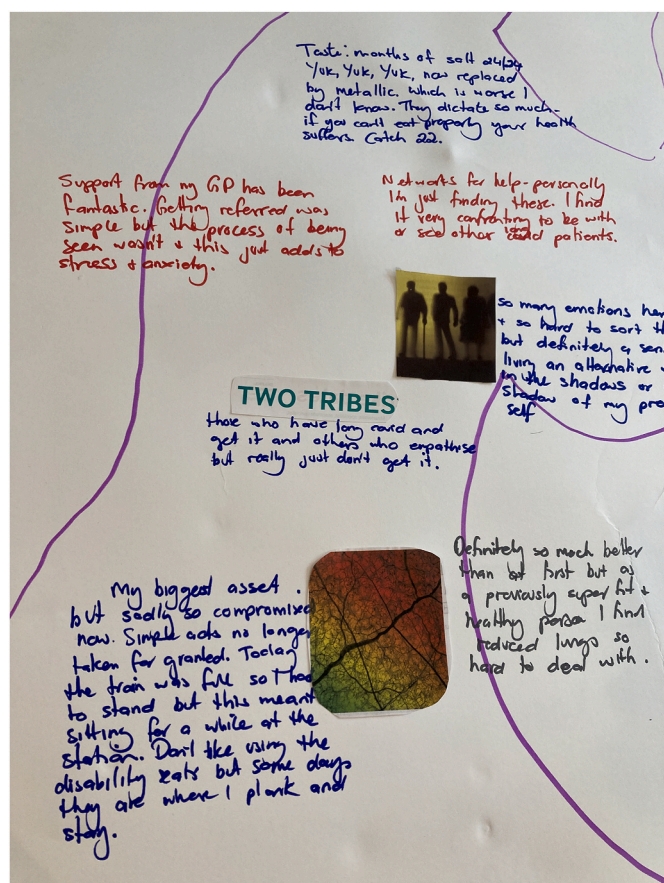 Taste: months of salt 24/24
Yuk, Yuk, Yuk, now replaced
by metallic. which is worse I
don't know. They dictate so much-
if you can't eat properly your health
suffers. Catch 22.
Support from my GP has been
fantastic. Getting referred was
simple but the process of being
seen wasn't & this just adds to
stress & anxiety.
Networks for help- personally
I'm just finding these. I find
it very confronting to be with
or see other patients.
so many emotions
+ so hard to sort
but definitely a
living an alternative
in the shadows or
shadow of my
self
TWO TRIBES
those who have long covid and
get it and others who empathise
but really just don't get it.
Definitely so much better
than at first but as
a previously super fit +
healthy person I find
reduced lungs so
hard to deal with.
My biggest asset.
but sadly so compromised
now. Simple acts no longer
taken for granted. Today
the train was full so I had
to stand but this meant
sitting for a while at the
station. Don't like using the
disability seats but some days
they are where I plank and
stay.